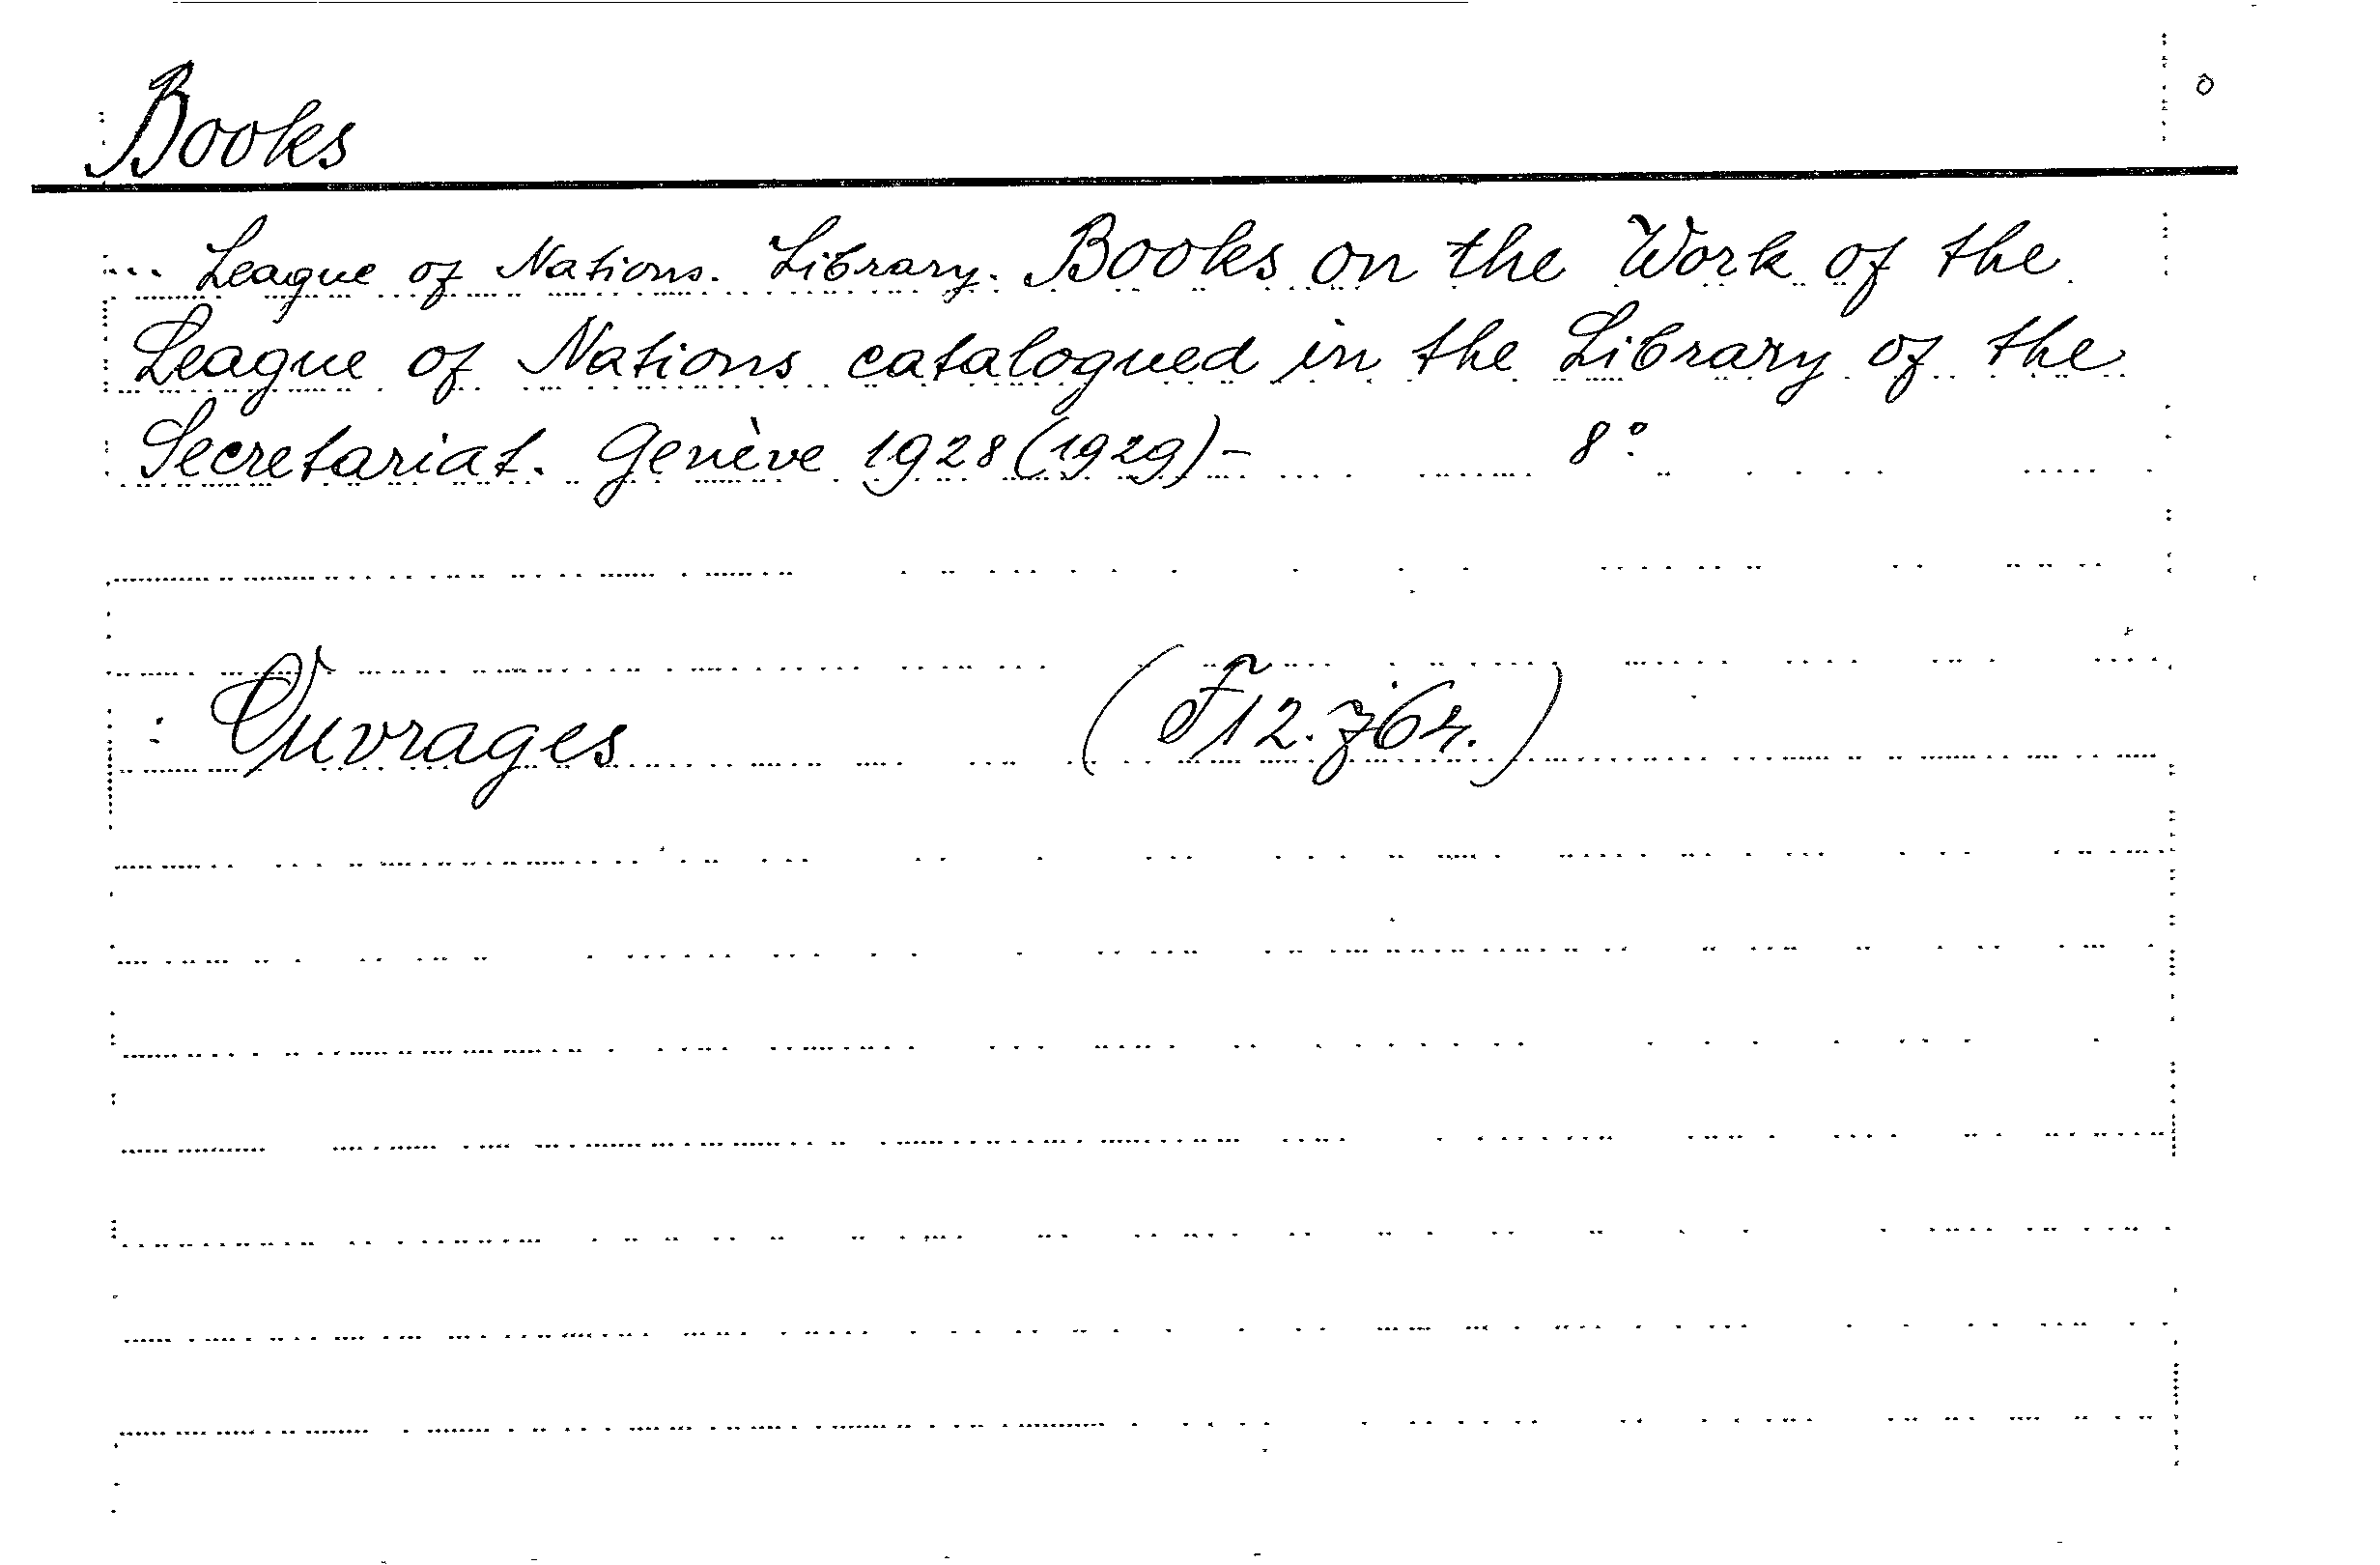 Books
... League of Nations. Library. Books on the Work of the
League of Nations catalogued in the Library of the
Secretariat. Genève 1928(1929)- 8°
: Ouvrages (F12.764.)